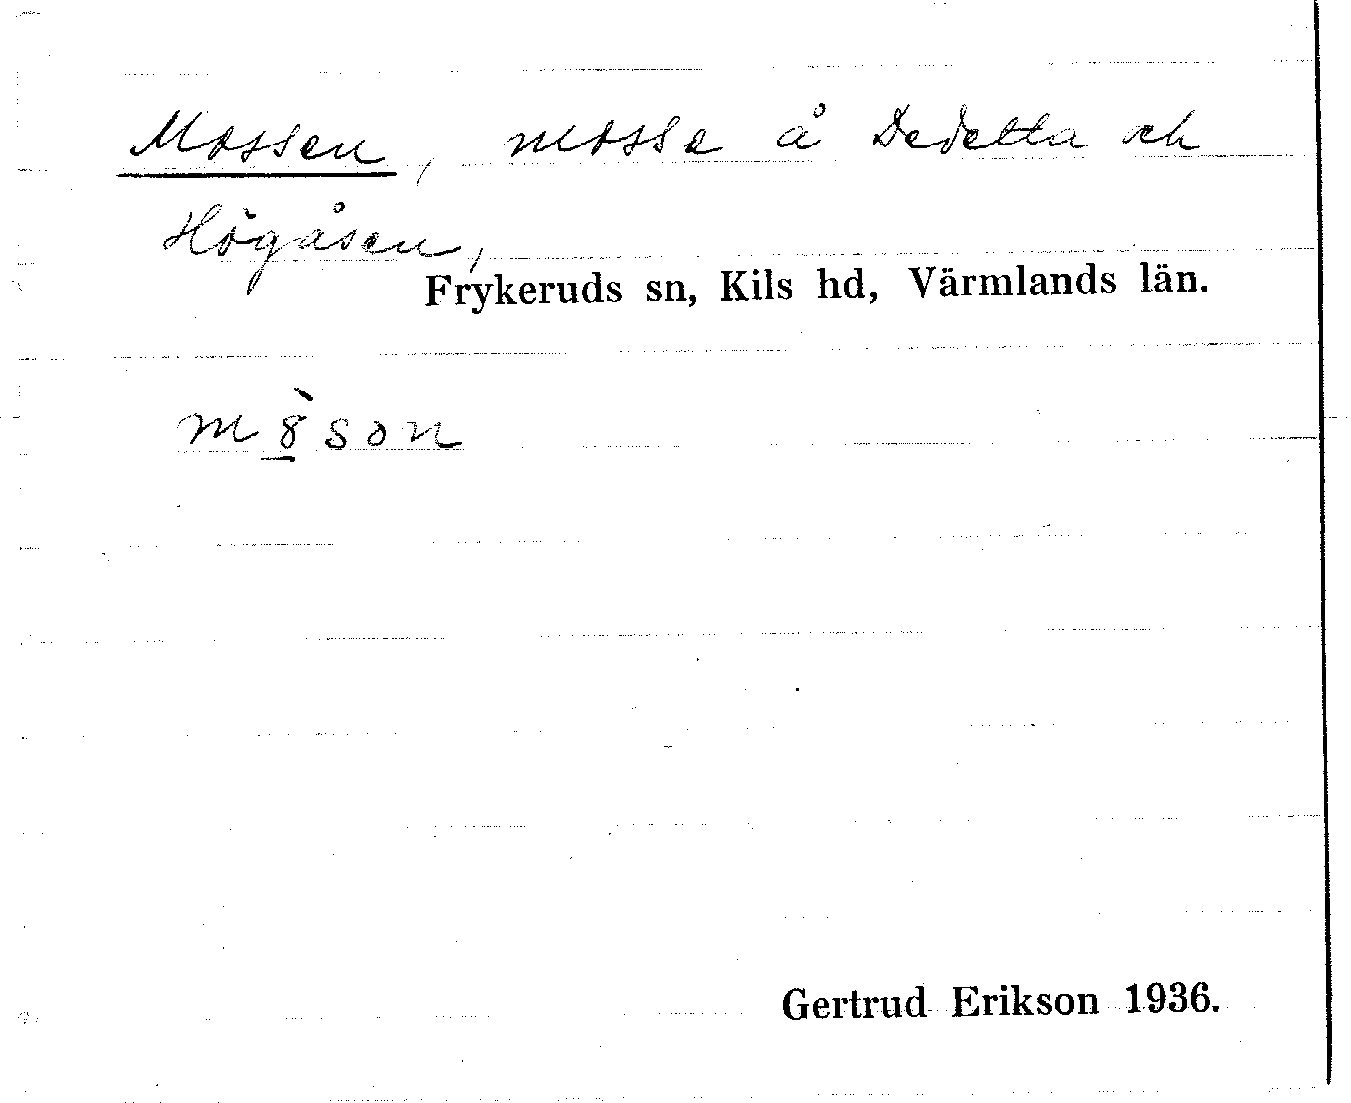 Mossen, mosse å Dedetta och
Högåsen,
Frykeruds sn, Kils hd, Värmlands län.
Gertrud Erikson 1936.